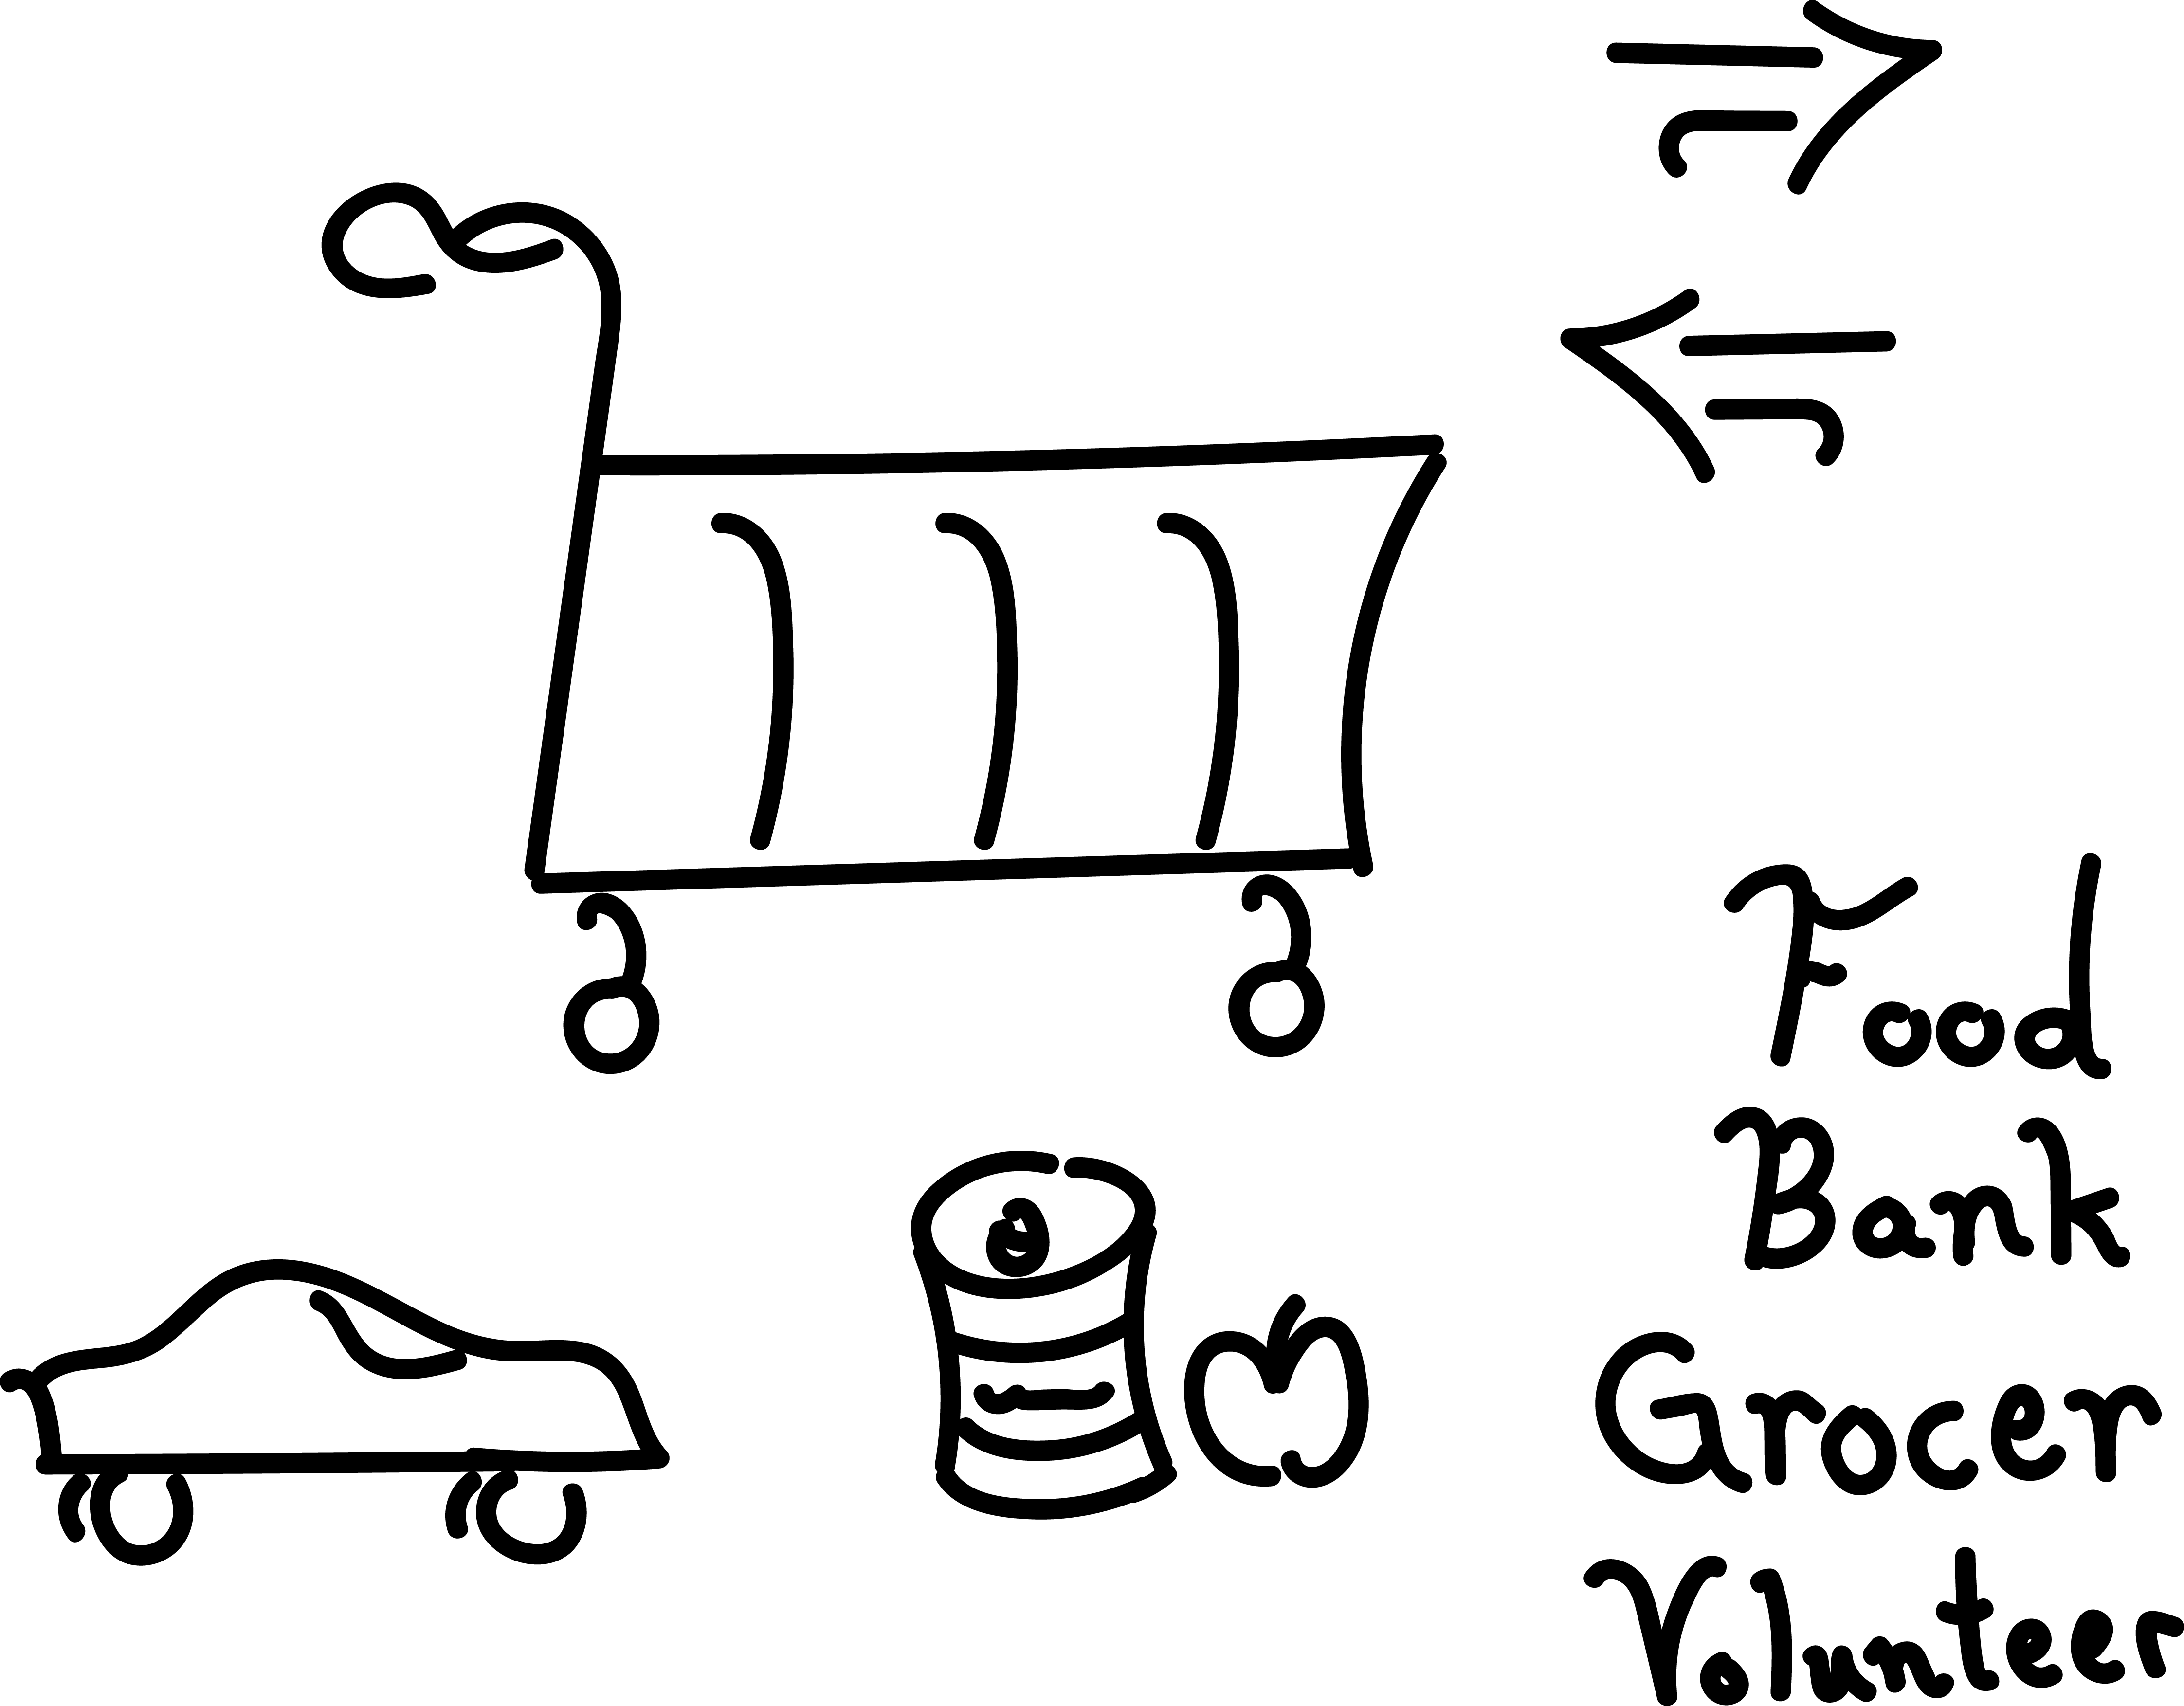 Food
Bank
Grocer
Volunteer